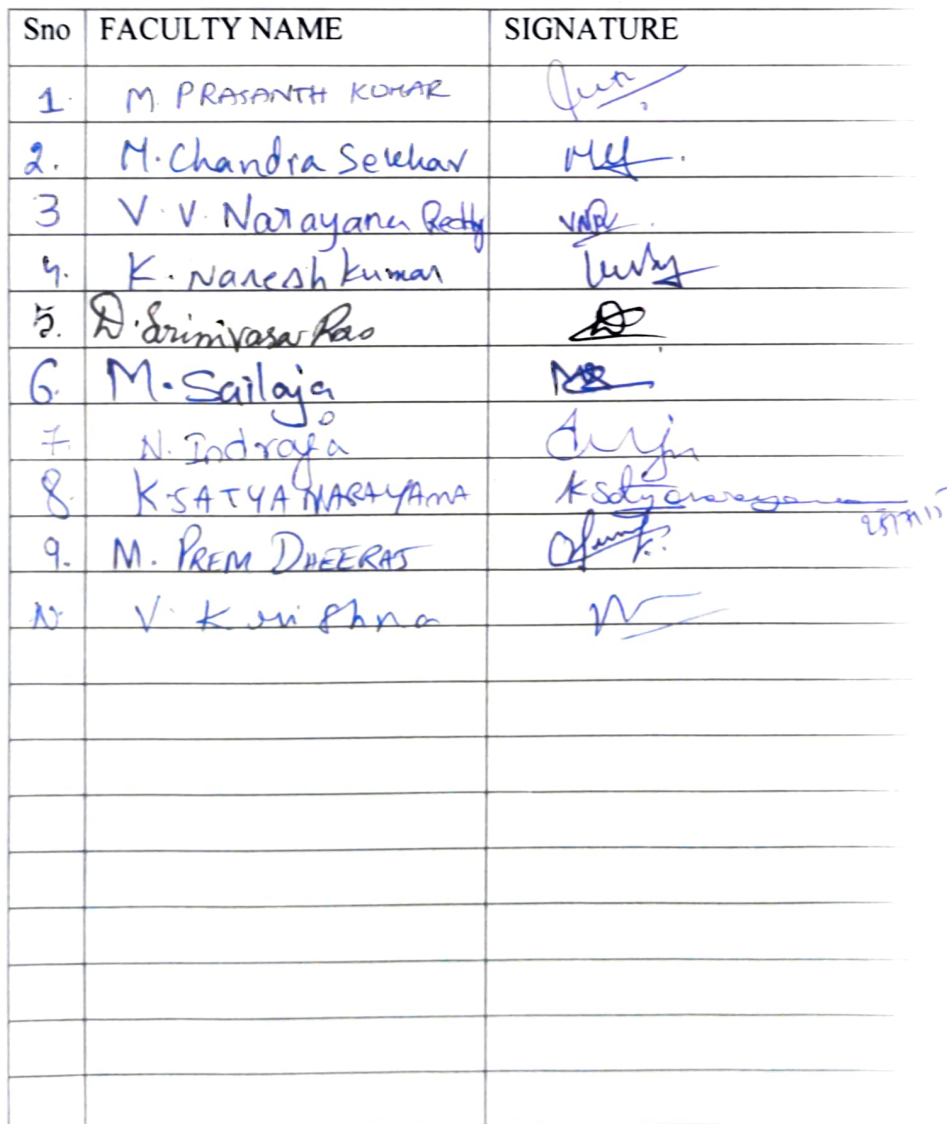 Sno FACULTY NAME SIGNATURE
1. M. PRASANTH KUMAR
2. M. Chandra Sekhar
3 V. V. Narayana Reddy VNR
4. K. Naresh Kumar
5. D. Srinivasa Rao
6. M. Sailaja
7. N. Indraja
8. K SATYA NARAYANA K Satyanarayana
9. M. PREM DHEERAJ
V. Krishna